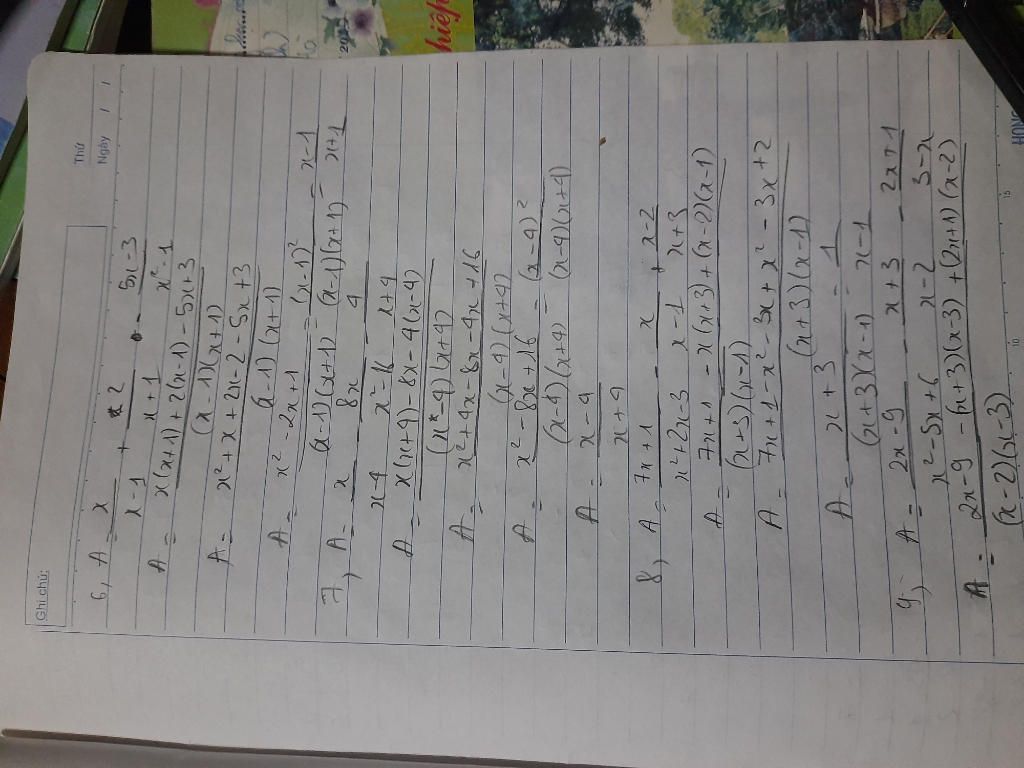 Thứ
Ngày / /
Ghi chú:
6, A = x/(x-1) + 2/(x+1) - (5x-3)/(x²-1)
A = (x(x+1) + 2(x-1) - 5x+3)/((x-1)(x+1))
A = (x²+x+2x-2-5x+3)/((x-1)(x+1))
A = (x²-2x+1)/((x-1)(x+1)) = (x-1)²/((x-1)(x+1)) = (x-1)/(x+1)
7, A = x/(x-4) - 8x/(x²-16) - 4/(x+4)
A = (x(x+4) - 8x - 4(x-4))/((x-4)(x+4))
A = (x²+4x-8x-4x+16)/((x-4)(x+4))
A = (x²-8x+16)/((x-4)(x+4)) = (x-4)²/((x-4)(x+4))
A = (x-4)/(x+4)
8, A = (7x+1)/(x²+2x-3) - x/(x-1) + (x-2)/(x+3)
A = (7x+1 - x(x+3) + (x-2)(x-1))/((x+3)(x-1))
A = (7x+1-x²-3x+x²-3x+2)/((x+3)(x-1))
A = (x+3)/((x+3)(x-1)) = 1/(x-1)
9, A = (2x-9)/(x²-5x+6) - (x+3)/(x-2) - (2x+1)/(3-x)
A = (2x-9-(x+3)(x-3)+(2x+1)(x-2))/((x-2)(x-3))
10
15
HONG